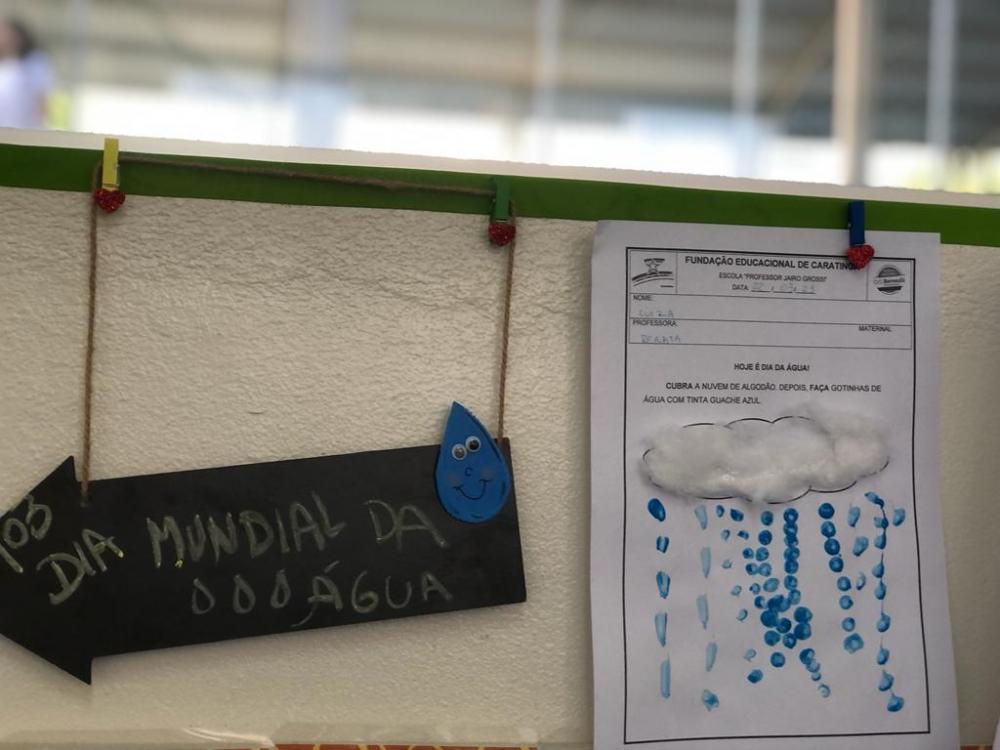 103
DIA MUNDIAL DA
ÁGUA
FUNDAÇÃO EDUCACIONAL DE CARATINGA
ESCOLA "PROFESSOR JAIRO GROSSI"
DATA:
NOME:
LUIZA
PROFESSORA:
MATERNAL
RENATA
HOJE É DIA DA ÁGUA!
CUBRA A NUVEM DE ALGODÃO. DEPOIS, FAÇA GOTINHAS DE
ÁGUA COM TINTA GUACHE AZUL.